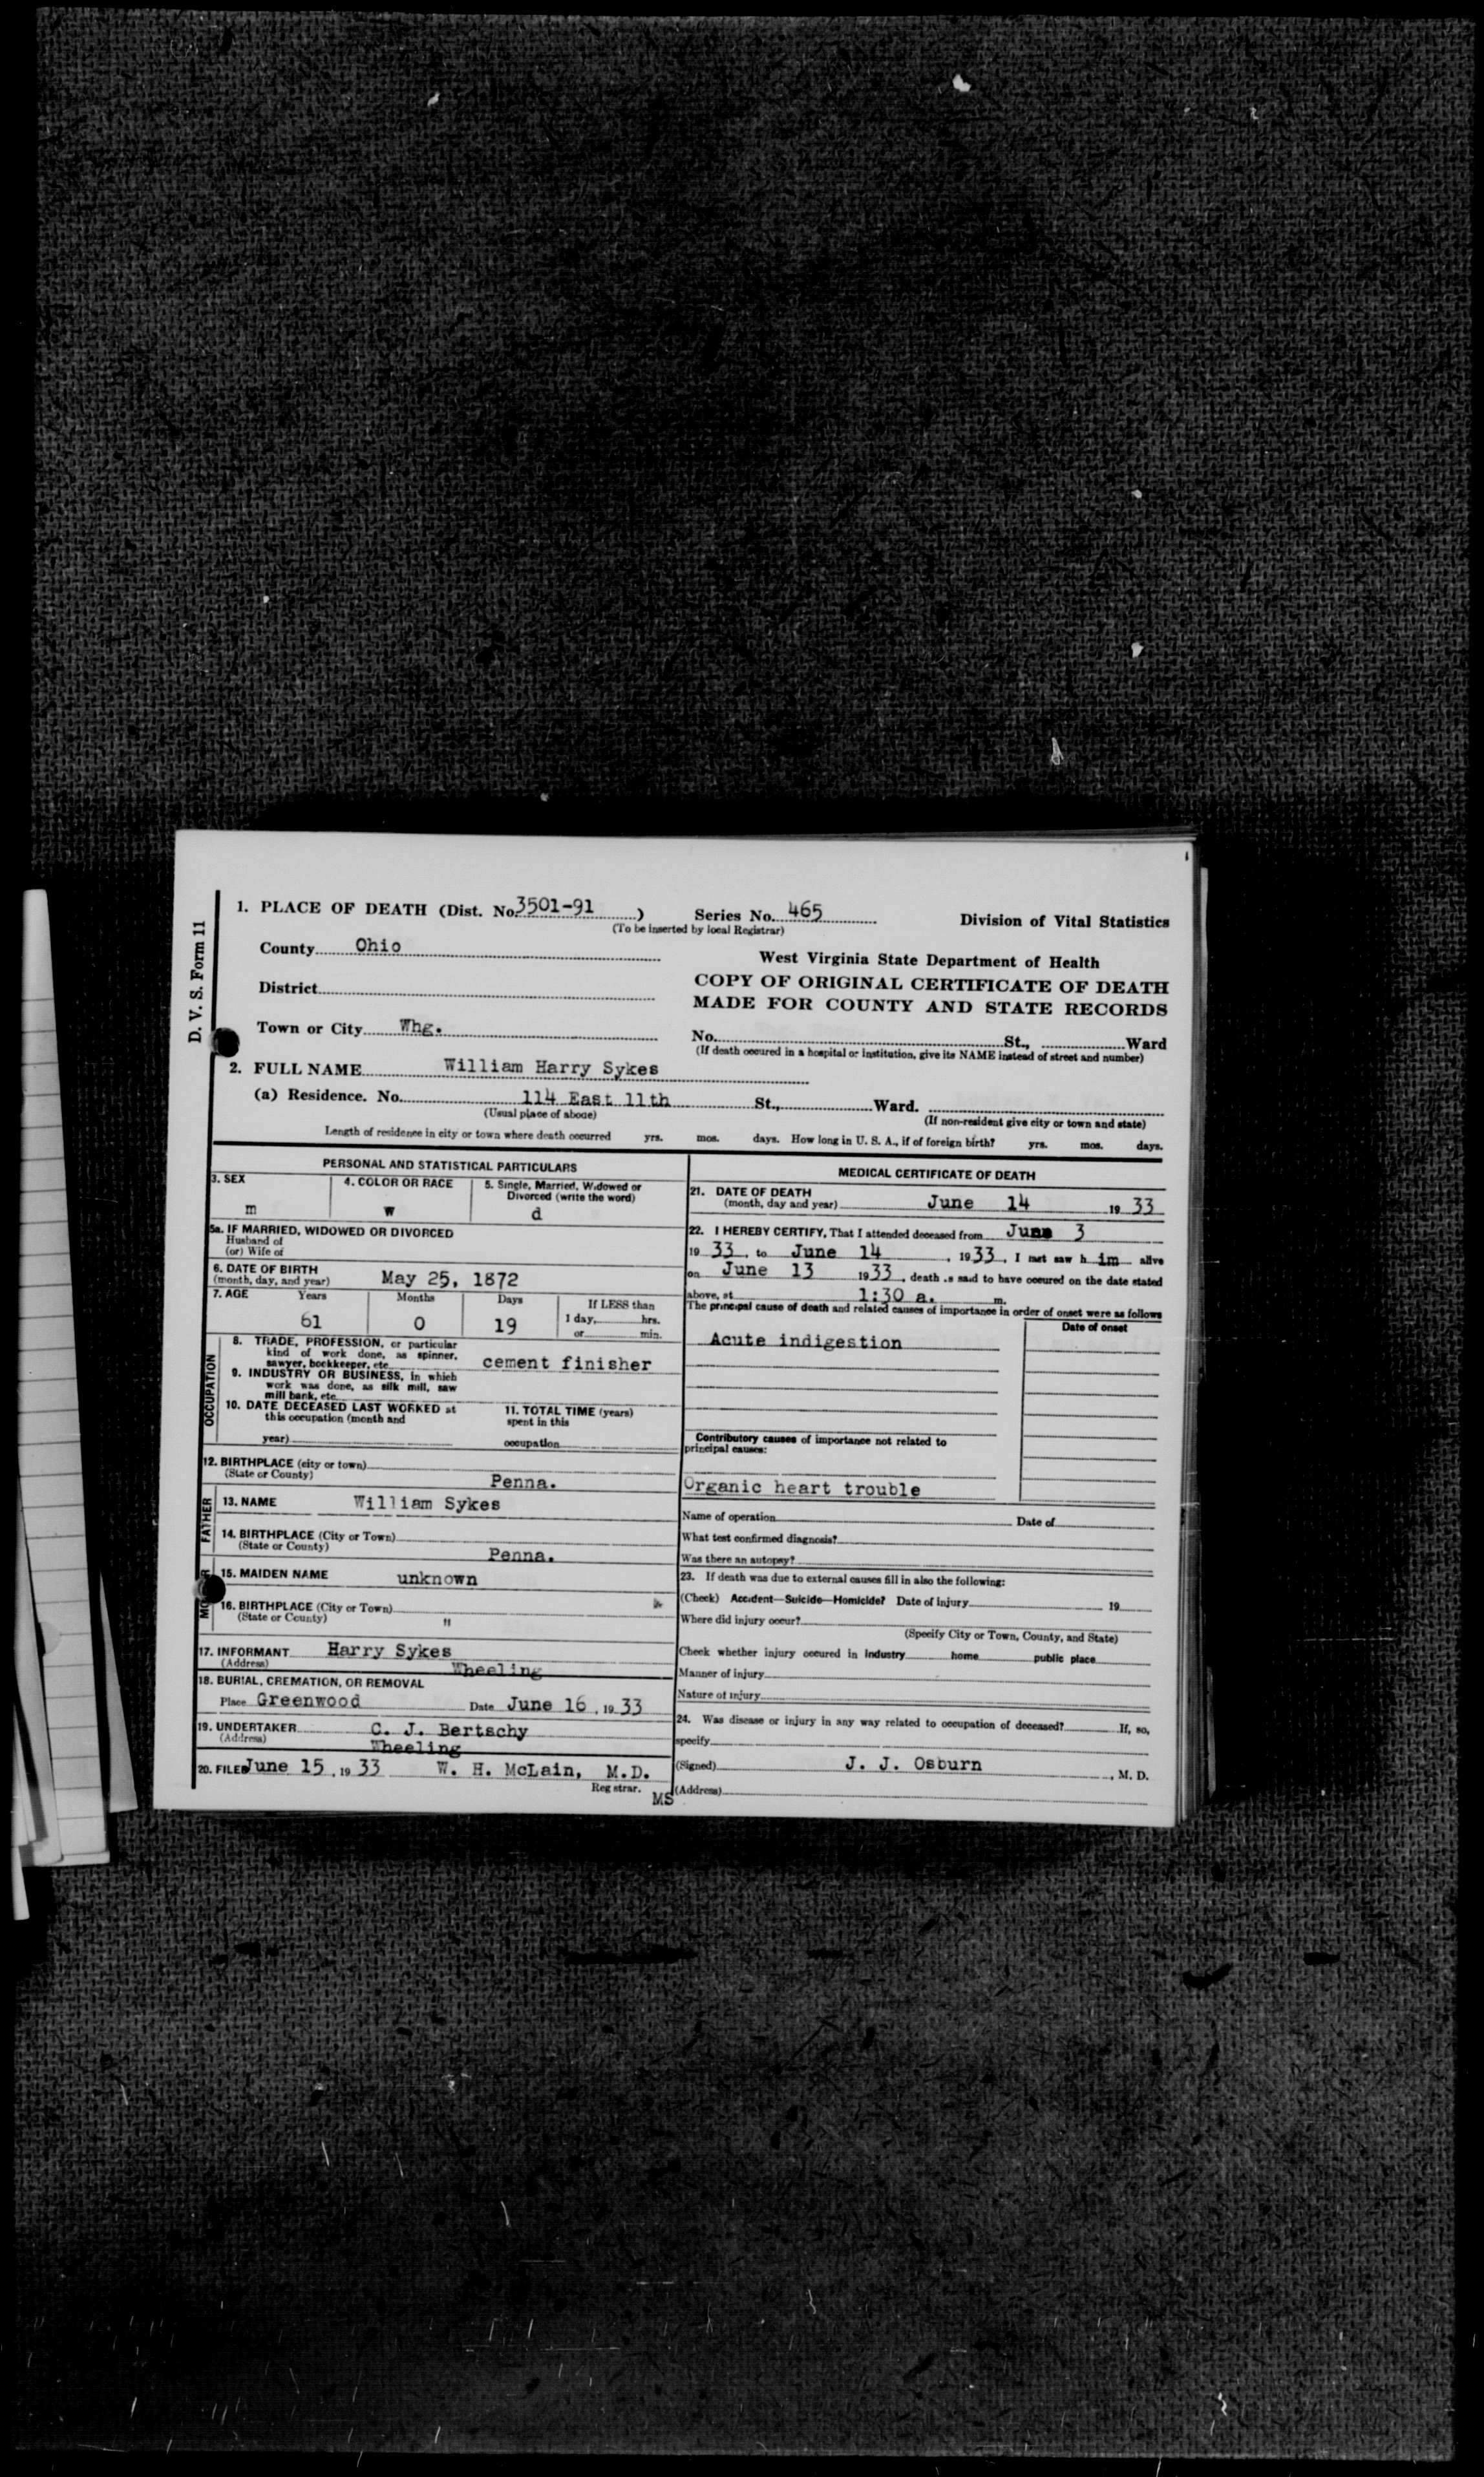 D. V. S. Form 11
1. PLACE OF DEATH (Dist. No. 3501-91 )
Series No. 465
Division of Vital Statistics
(To be inserted by local Registrar)
County Ohio
West Virginia State Department of Health
District
COPY OF ORIGINAL CERTIFICATE OF DEATH
MADE FOR COUNTY AND STATE RECORDS
Town or City Whg.
No. St., Ward
(If death occured in a hospital or institution, give its NAME instead of street and number)
2. FULL NAME William Harry Sykes
(a) Residence. No. 114 East 11th St., Ward.
(Usual place of abode)
(If non-resident give city or town and state)
Length of residence in city or town where death occurred yrs. mos. days. How long in U. S. A., if of foreign birth? yrs. mos. days.
PERSONAL AND STATISTICAL PARTICULARS
3. SEX
4. COLOR OR RACE
5. Single, Married, Widowed or
Divorced (write the word)
m
w
d
5a. IF MARRIED, WIDOWED OR DIVORCED
Husband of
(or) Wife of
6. DATE OF BIRTH
(month, day, and year) May 25, 1872
7. AGE Years Months Days If LESS than
61 0 19 1 day, hrs.
or min.
OCCUPATION
8. TRADE, PROFESSION, or particular
kind of work done, as spinner,
sawyer, bookkeeper, etc. cement finisher
9. INDUSTRY OR BUSINESS, in which
work was done, as silk mill, saw
mill bank, etc.
10. DATE DECEASED LAST WORKED at
this occupation (month and
year)
11. TOTAL TIME (years)
spent in this
occupation
12. BIRTHPLACE (city or town)
(State or County) Penna.
FATHER
13. NAME William Sykes
14. BIRTHPLACE (City or Town)
(State or County) Penna.
15. MAIDEN NAME unknown
16. BIRTHPLACE (City or Town)
(State or County) "
17. INFORMANT Harry Sykes
(Address) Wheeling
18. BURIAL, CREMATION, OR REMOVAL
Place Greenwood Date June 16, 19 33
19. UNDERTAKER C. J. Bertschy
(Address) Wheeling
20. FILED June 15, 19 33 W. H. McLain, M.D.
Registrar.
MS
MEDICAL CERTIFICATE OF DEATH
21. DATE OF DEATH
(month, day and year) June 14 19 33
22. I HEREBY CERTIFY, That I attended deceased from June 3
19 33, to June 14, 19 33, I last saw h im alive
on June 13 19 33, death is said to have occured on the date stated
above, at 1:30 a. m.
The principal cause of death and related causes of importance in order of onset were as follows
Date of onset
Acute indigestion
Contributory causes of importance not related to
principal causes:
Organic heart trouble
Name of operation Date of
What test confirmed diagnosis?
Was there an autopsy?
23. If death was due to external causes fill in also the following:
(Check) Accident—Suicide—Homicide? Date of injury 19
Where did injury occur?
(Specify City or Town, County, and State)
Check whether injury occured in industry home public place
Manner of injury
Nature of injury
24. Was disease or injury in any way related to occupation of deceased? If, so,
specify
(Signed) J. J. Osburn, M. D.
(Address)